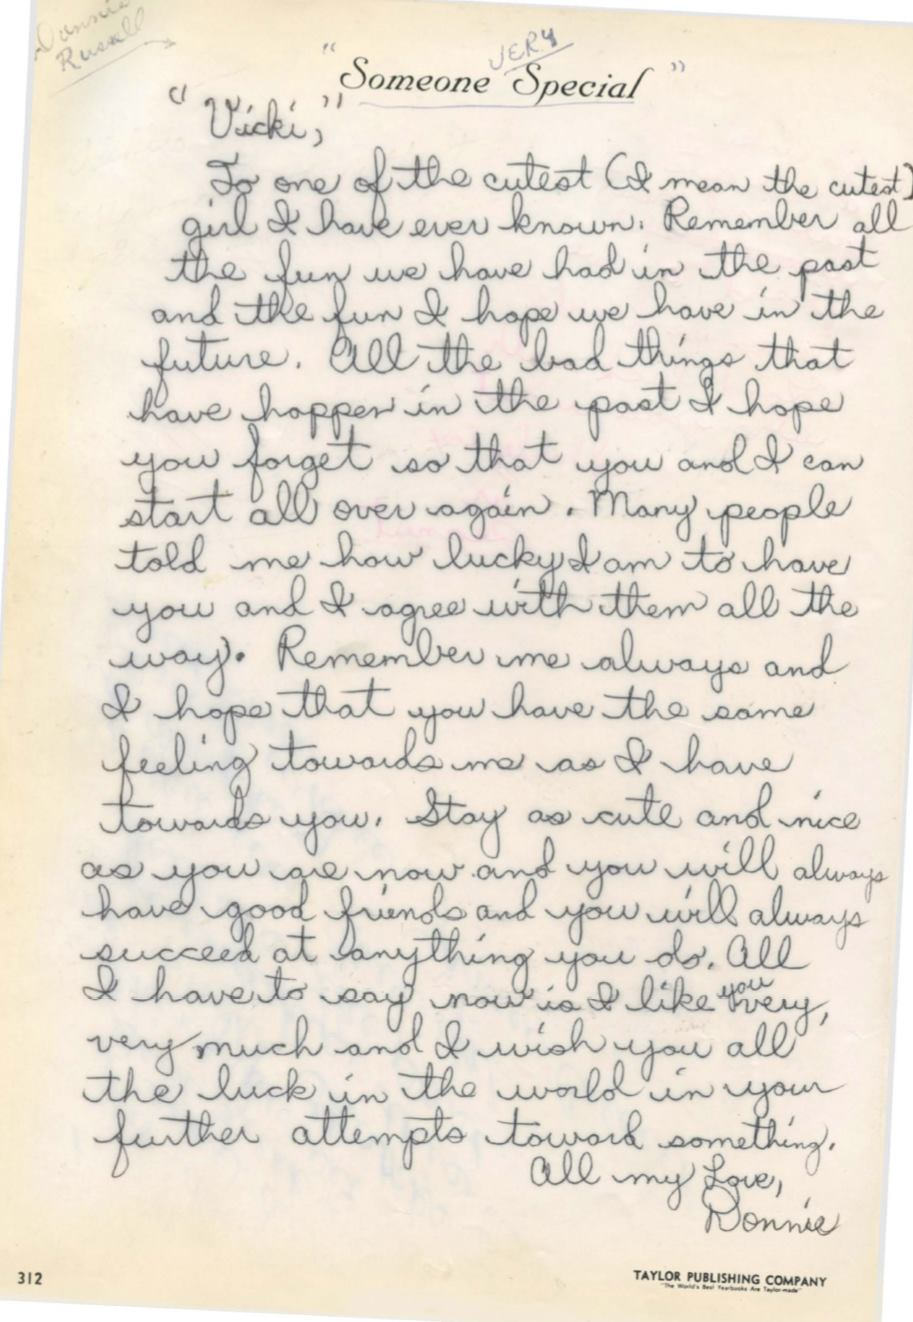 Donnie
Rusell
VERY
" Someone Special "
"Vicki,"
To one of the cutest (I mean the cutest)
girl I have ever known. Remember all
the fun we have had in the past
and the fun I hope we have in the
future. All the bad things that
have happen in the past I hope
you forget so that you and I can
start all over again. Many people
told me how lucky I am to have
you and I agree with them all the
way. Remember me always and
I hope that you have the same
feeling towards me as I have
towards you. Stay as cute and nice
as you are now and you will always
have good friends and you will always
succeed at anything you do. All
I have to say now is I like you very,
very much and I wish you all
the luck in the world in your
further attempts toward something.
All my Love,
Donnie
312
TAYLOR PUBLISHING COMPANY
"The World's Best Yearbooks Are Taylor-made"